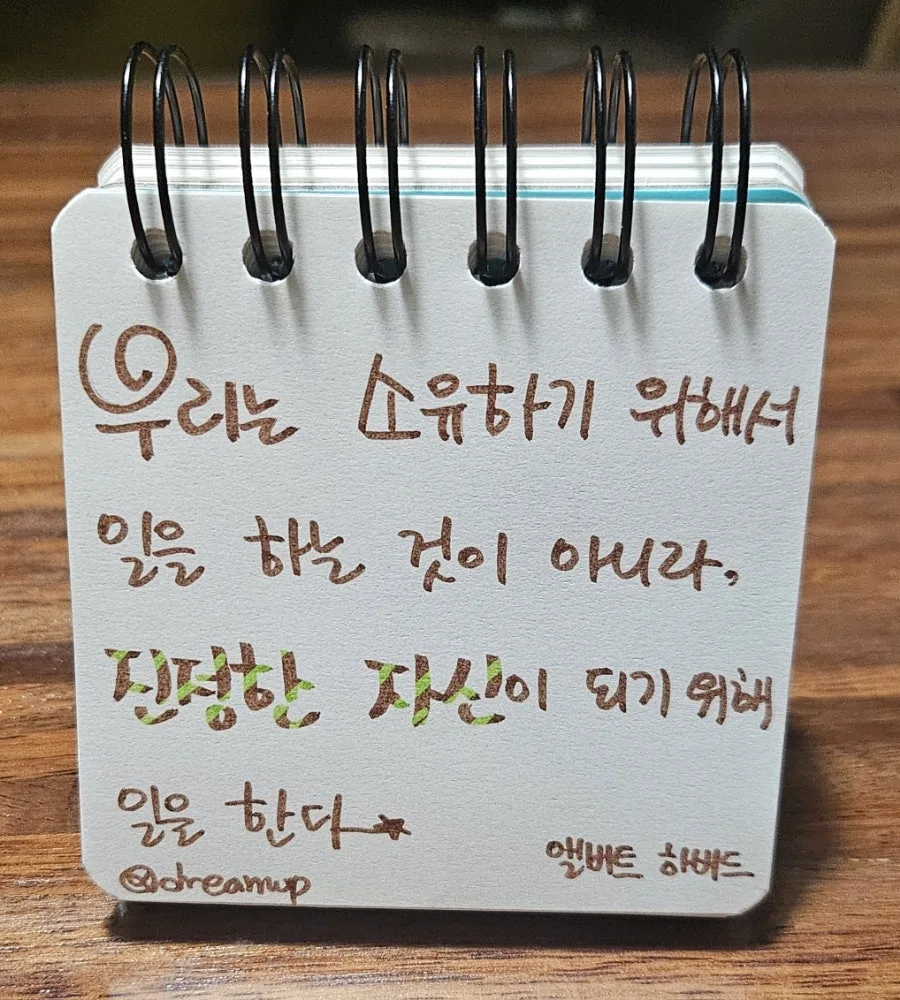 우리는 소유하기 위해서
일을 하는 것이 아니라,
진정한 자신이 되기 위해
일을 한다
앨버트 하버드
@dreamwp